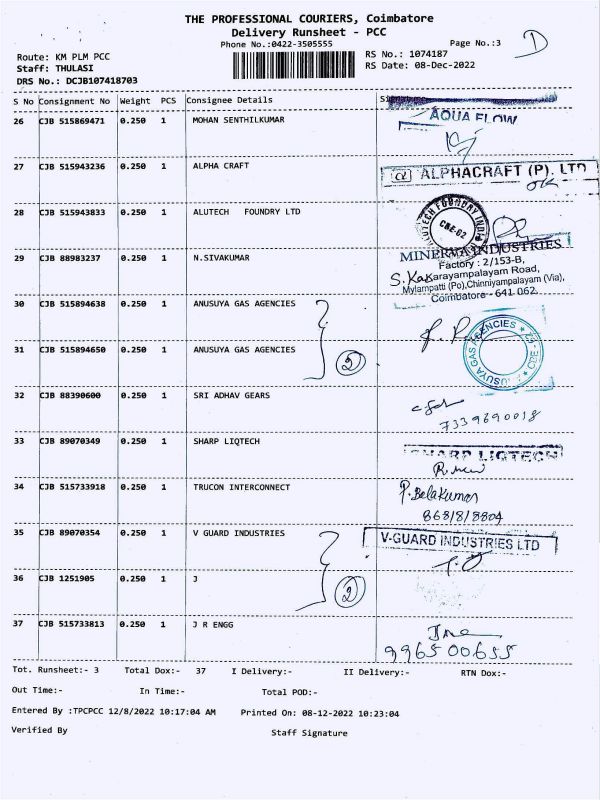 THE PROFESSIONAL COURIERS, Coimbatore
Delivery Runsheet - PCC
Phone No.:0422-3505555
Page No.:3 D
Route: KM PLM PCC RS No.: 1074187
Staff: THULASI RS Date: 08-Dec-2022
DRS No.: DCJB107418703
S No Consignment No Weight PCS Consignee Details
26 CJB 515869471 0.250 1 MOHAN SENTHILKUMAR AQUA FLOW
27 CJB 515943236 0.250 1 ALPHA CRAFT ALPHACRAFT (P). LTD
OK
28 CJB 515943833 0.250 1 ALUTECH FOUNDRY LTD
CBE-02
29 CJB 88983237 0.250 1 N.SIVAKUMAR MINERVA INDUSTRIES
Factory : 2/153-B,
Karayampalayam Road,
Mylampatti (Po),Chinniyampalayam (Via),
Coimbatore - 641 062.
30 CJB 515894638 0.250 1 ANUSUYA GAS AGENCIES
31 CJB 515894650 0.250 1 ANUSUYA GAS AGENCIES 2
32 CJB 88390600 0.250 1 SRI ADHAV GEARS
7339690018
33 CJB 89070349 0.250 1 SHARP LIQTECH SHARP LIQTECH
34 CJB 515733918 0.250 1 TRUCON INTERCONNECT P. Belakumar
868/8/8804
35 CJB 89070354 0.250 1 V GUARD INDUSTRIES V-GUARD INDUSTRIES LTD
36 CJB 1251905 0.250 1 J 2
37 CJB 515733813 0.250 1 J R ENGG
996500655
Tot. Runsheet:- 3 Total Dox:- 37 I Delivery:- II Delivery:- RTN Dox:-
Out Time:- In Time:- Total POD:-
Entered By :TPCPCC 12/8/2022 10:17:04 AM Printed On: 08-12-2022 10:23:04
Verified By Staff Signature